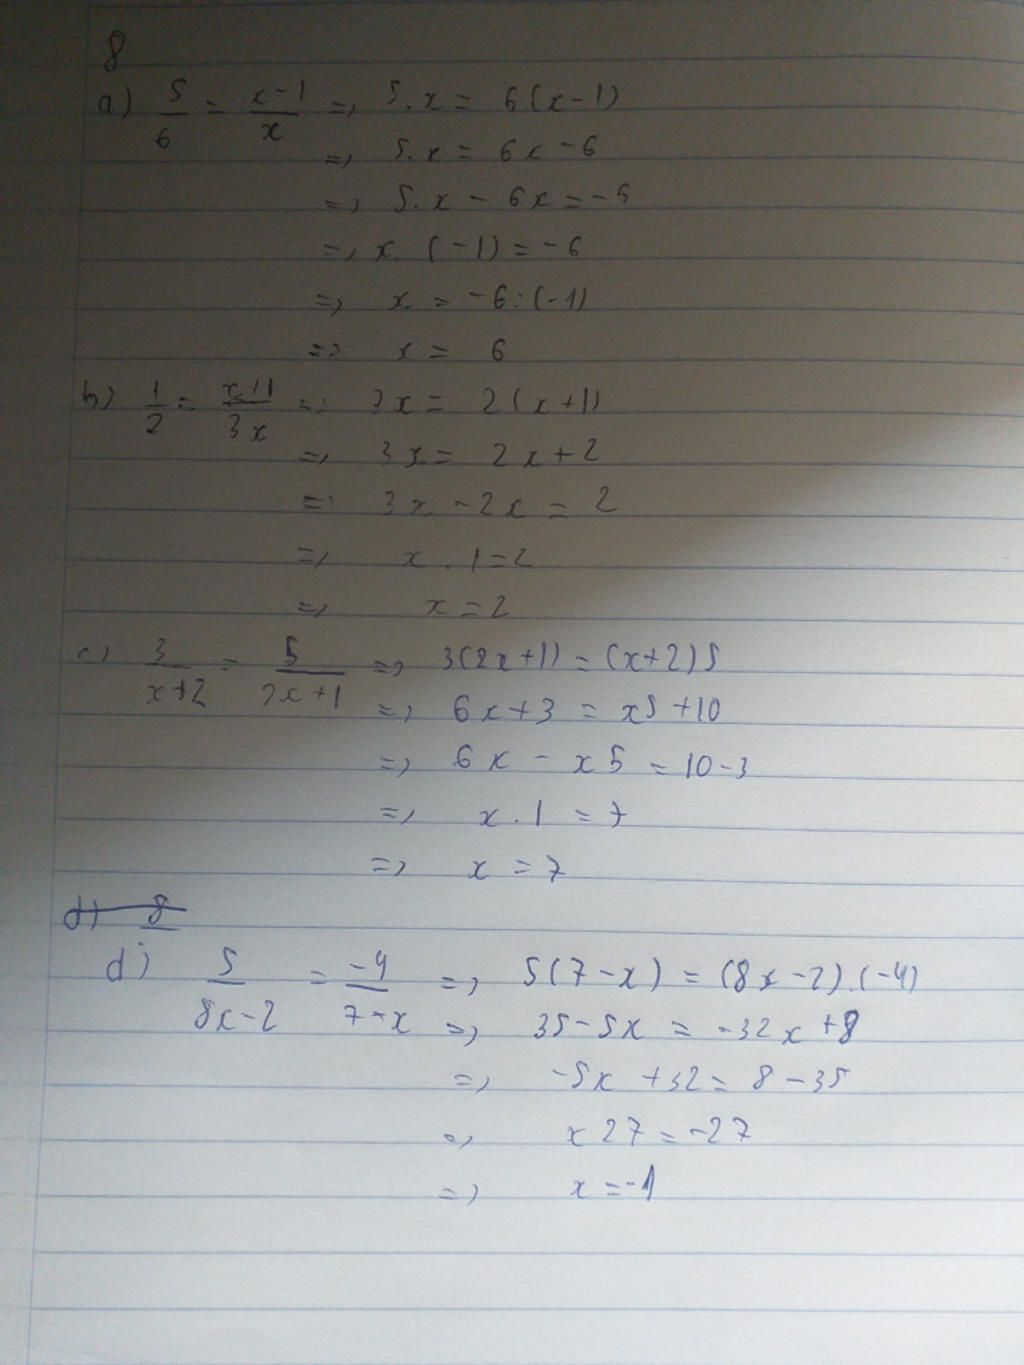 8
a) 5/6 = x-1/x => 5.x = 6(x-1)
=> 5.x = 6x-6
=> 5.x - 6x = -6
=> x. (-1) = -6
=> x = -6:(-1)
=> x = 6
b) 1/2 = x+1/3x => 3x = 2(x+1)
=> 3x = 2x+2
=> 3x - 2x = 2
=> x . 1 = 2
=> x = 2
c) 3/x+2 = 5/2x+1 => 3(2x+1) = (x+2)5
=> 6x+3 = x5+10
=> 6x - x5 = 10-3
=> x . 1 = 7
=> x = 7
d) 8
d) 5/8x-2 = -4/7-x => 5(7-x) = (8x-2).(-4)
=> 35-5x = -32x+8
=> -5x +32 = 8-35
=> x27 = -27
=> x = -1